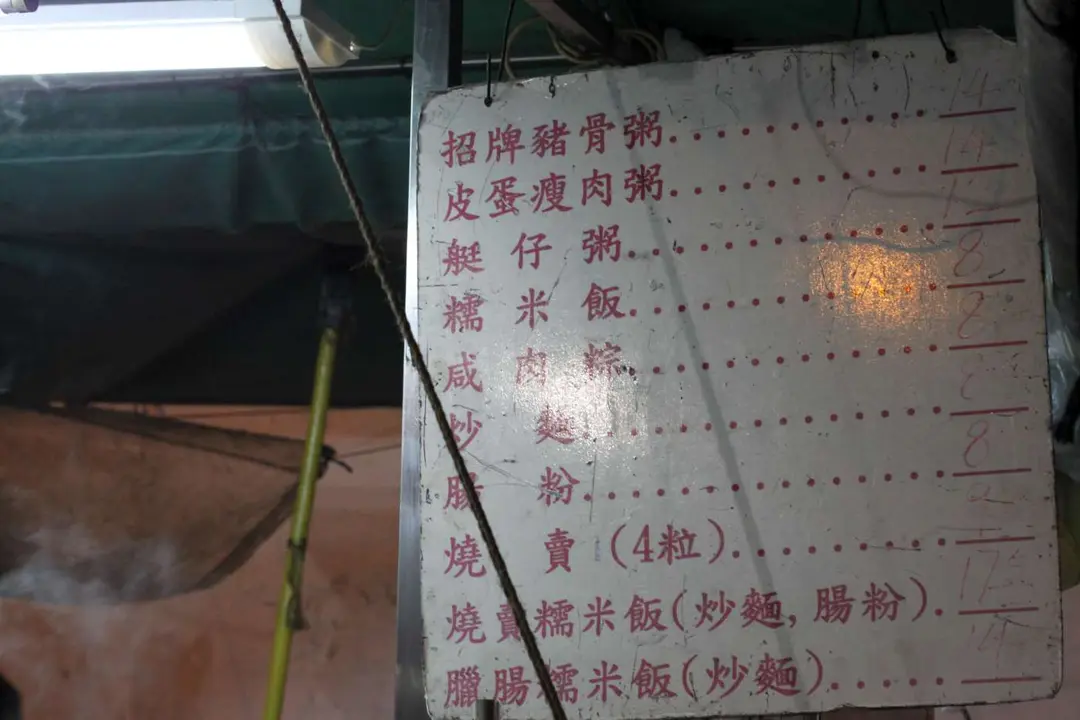 招牌豬骨粥 14
皮蛋瘦肉粥 14
艇仔粥
糯米飯 8
咸肉粽 8
炒麵
腸粉 8
燒賣(4粒)
燒賣糯米飯(炒麵,腸粉). 17
臘腸糯米飯(炒麵)